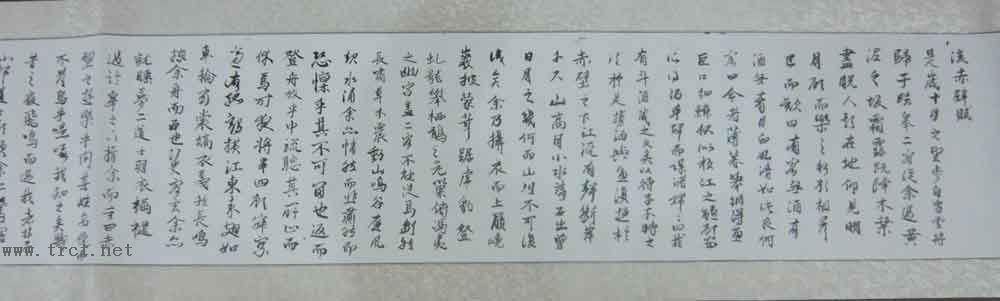 後赤壁賦
是歲十月之望步自雪堂將
歸于臨皋二客從余過黃
泥之坂霜露既降木葉
盡脫人影在地仰見明
月顧而樂之行歌相答
已而歎曰有客無酒有
酒無肴月白風清如此良何
客曰今者薄暮舉網得魚
巨口細鱗狀似松江之鱸顧安
所得酒乎歸而謀諸婦婦曰我
有斗酒藏之久矣以待子不時之
須於是攜酒與魚復遊於
赤壁之下江流有聲斷岸
千尺山高月小水落石出曾
日月之幾何而山川不可復
識矣余乃攝衣而上履巉
巖披蒙茸踞虎豹登
虬龍攀栖鶻之危巢俯馮夷
之幽宮蓋二客不能從焉劃然
長嘯草木震動山鳴谷應風
起水涌余亦悄然而悲肅然而
恐凜乎其不可留也返而
登舟放乎中流聽其所止而
休焉時夜將半四顧寂寥
適有孤鶴橫江東來翅如
車輪玄裳縞衣戛然長鳴
掠余舟而西也須臾客去余亦
就睡夢二道士羽衣蹁躚
過臨皋之下揖余而言曰赤
壁之遊樂乎問其姓名俛而
不答嗚呼噫嘻我知之矣疇
昔之夜飛鳴而過我者非
www.trcf.net
www.trcf.net